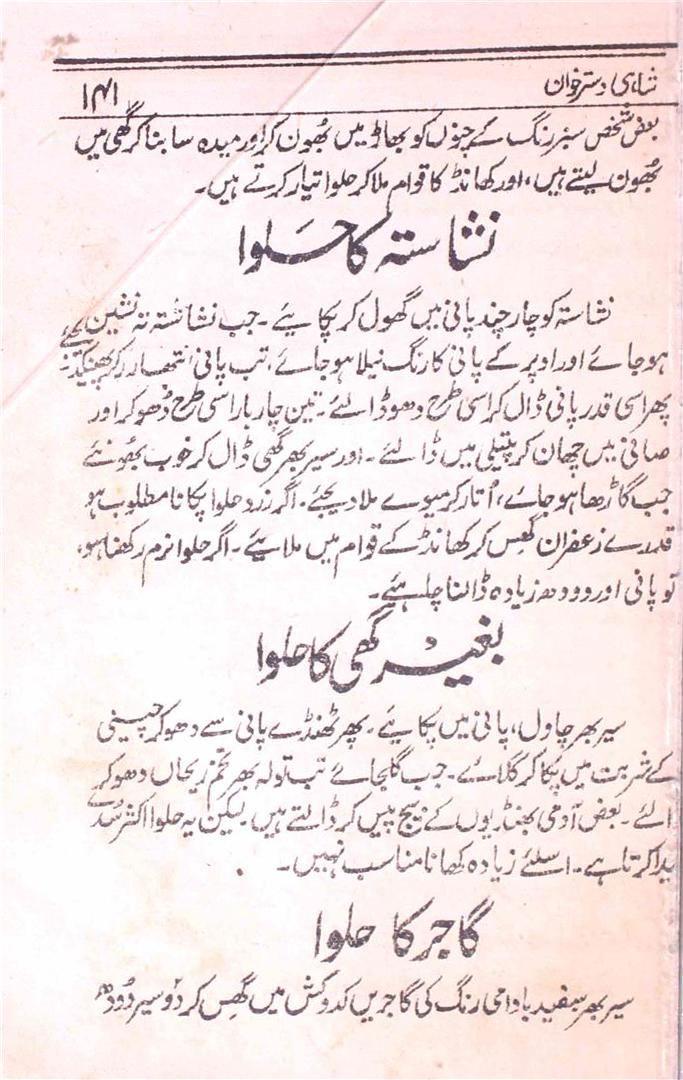 شاہی دسترخوان
۱۴۱
بعض شخص سبز رنگ کے چنوں کو بھاڑ میں بھون کر اور میدہ سا بنا کر گھی میں
بھون لیتے ہیں، اور کھانڈ کا قوام ملا کر حلوا تیار کرتے ہیں۔
نشاستہ کا حلوا
نشاستہ کو چار چند پانی میں گھول کر پکایئے۔ جب نشاستہ تہ نشین
ہو جائے اور اوپر کے پانی کا رنگ نیلا ہو جائے، تب پانی نتھار کر پھینکدیجئے
پھر اسی قدر پانی ڈال کر اسی طرح دھو ڈالئے۔ تین چار بار اسی طرح دھو کر اور
صافی میں چھان کر پتیلی میں ڈالئے۔ اور سیر بھر گھی ڈال کر خوب بھونئے
جب گاڑھا ہو جائے، اُتار کر میوے ملا دیجئے۔ اگر زرد حلوا پکانا مطلوب ہو
قدرے زعفران گھس کر کھانڈ کے قوام میں ملایئے۔ اگر حلوا نرم رکھنا ہو،
تو پانی اور دودھ زیادہ ڈالنا چاہئے۔
بغیر گھی کا حلوا
سیر بھر چاول، پانی میں پکایئے۔ پھر ٹھنڈے پانی سے دھو کر چینی
کے شربت میں پکا کر گلائے۔ جب گلجائے تب تولہ بھر تخم ریحاں دھو کر
ڈالئے۔ بعض آدمی بھنڈریوں کے بیج پیس کر ڈالتے ہیں۔ لیکن یہ حلوا اکثر سُدے
پیدا کرتا ہے۔ اسلئے زیادہ کھانا مناسب نہیں۔
گاجر کا حلوا
سیر بھر سفید بادامی رنگ کی گاجریں کدوکش میں گھس کر دو سیر دودھ